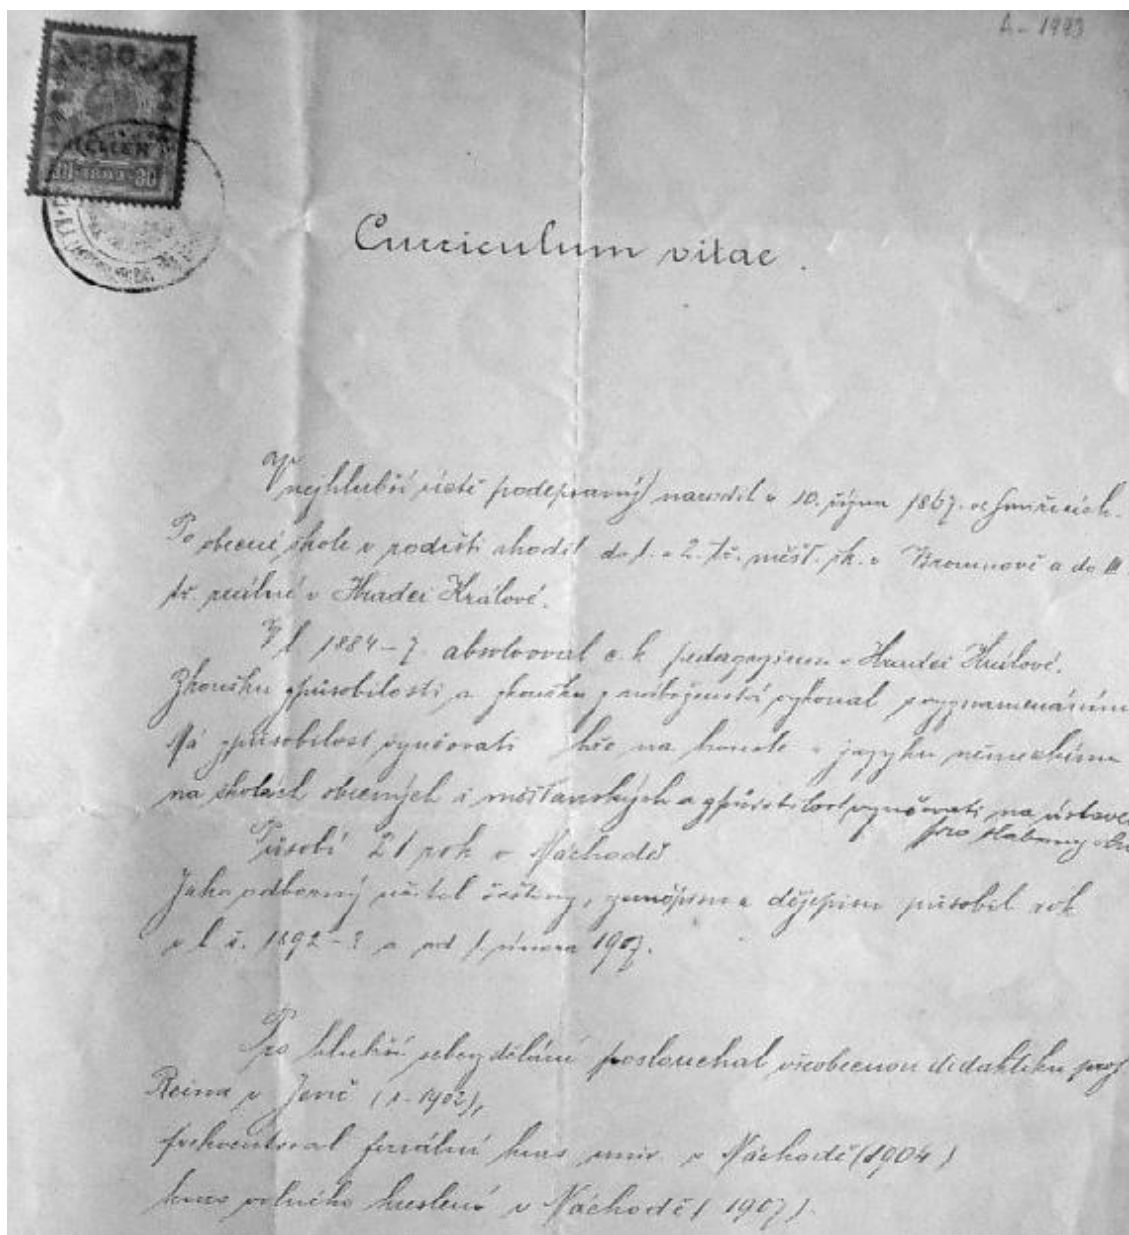 A - 1993
30
HELLER
30 1898 30
Curriculum vitae.
V nejhlubší úctě podepsaný narodil s 10. října 1867. ve Smiřicích.
Po obecné škole v rodišti chodil do 1. a 2. tř. měšť. šk. v Broumově a do III.
tř. reálné v Hradci Králové.
V l. 1884-7. absolvoval c. k. pedagogium v Hradci Králové.
Zkoušku způsobilosti a zkoušku z náboženství vykonal s vyznamenáním
Má způsobilost vyučovati hře na housle a jazyku německému
na školách obecných i měšťanských a způsobilost vyučovati na ústavě
pro slabomysl
Působí 21 rok v Náchodě
Jako odborný učitel češtiny, zeměpisu a dějepisu působil rok
v l. š. 1892-3 a od 1. února 1907.
Pro hlubší sebevzdělání poslouchal všeobecnou didaktiku prof
Reina v Jeně (r. 1902),
frekventoval feriální kurs univ. v Náchodě (1904)
kurs volného kreslení v Náchodě (1907).